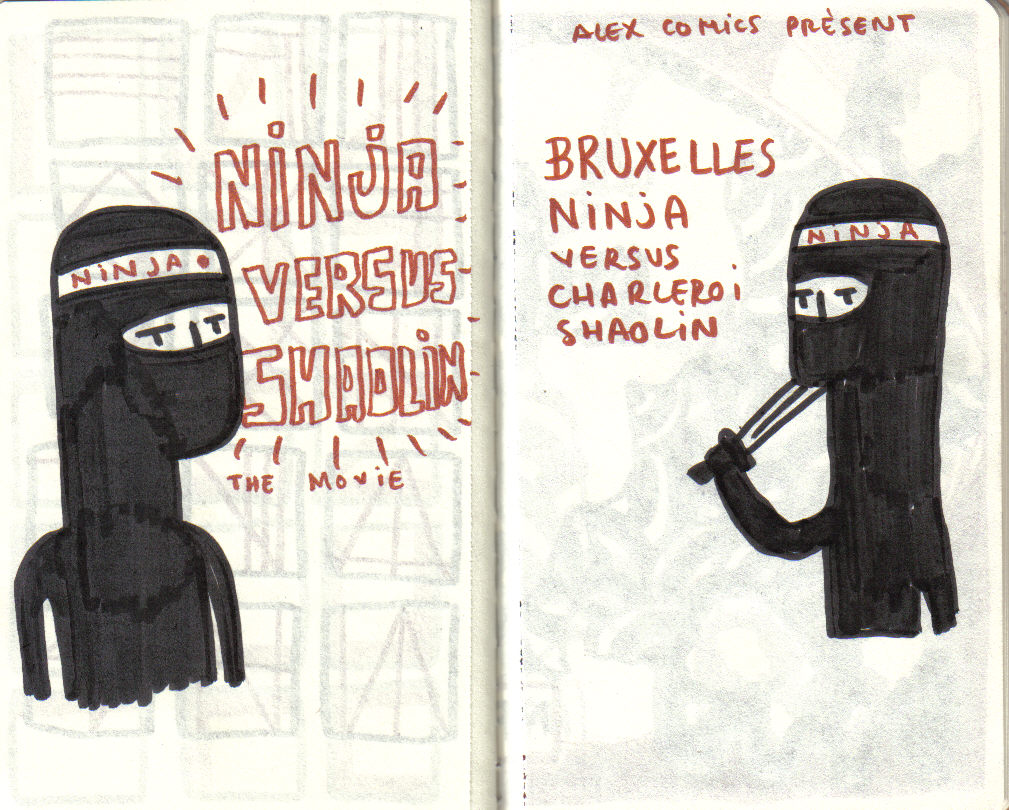 NINJA
VERSUS
SHAOLIN
THE MOVIE
NINJA
ALEX COMICS PRÈSENT
BRUXELLES
NINJA
VERSUS
CHARLEROI
SHAOLIN
NINJA